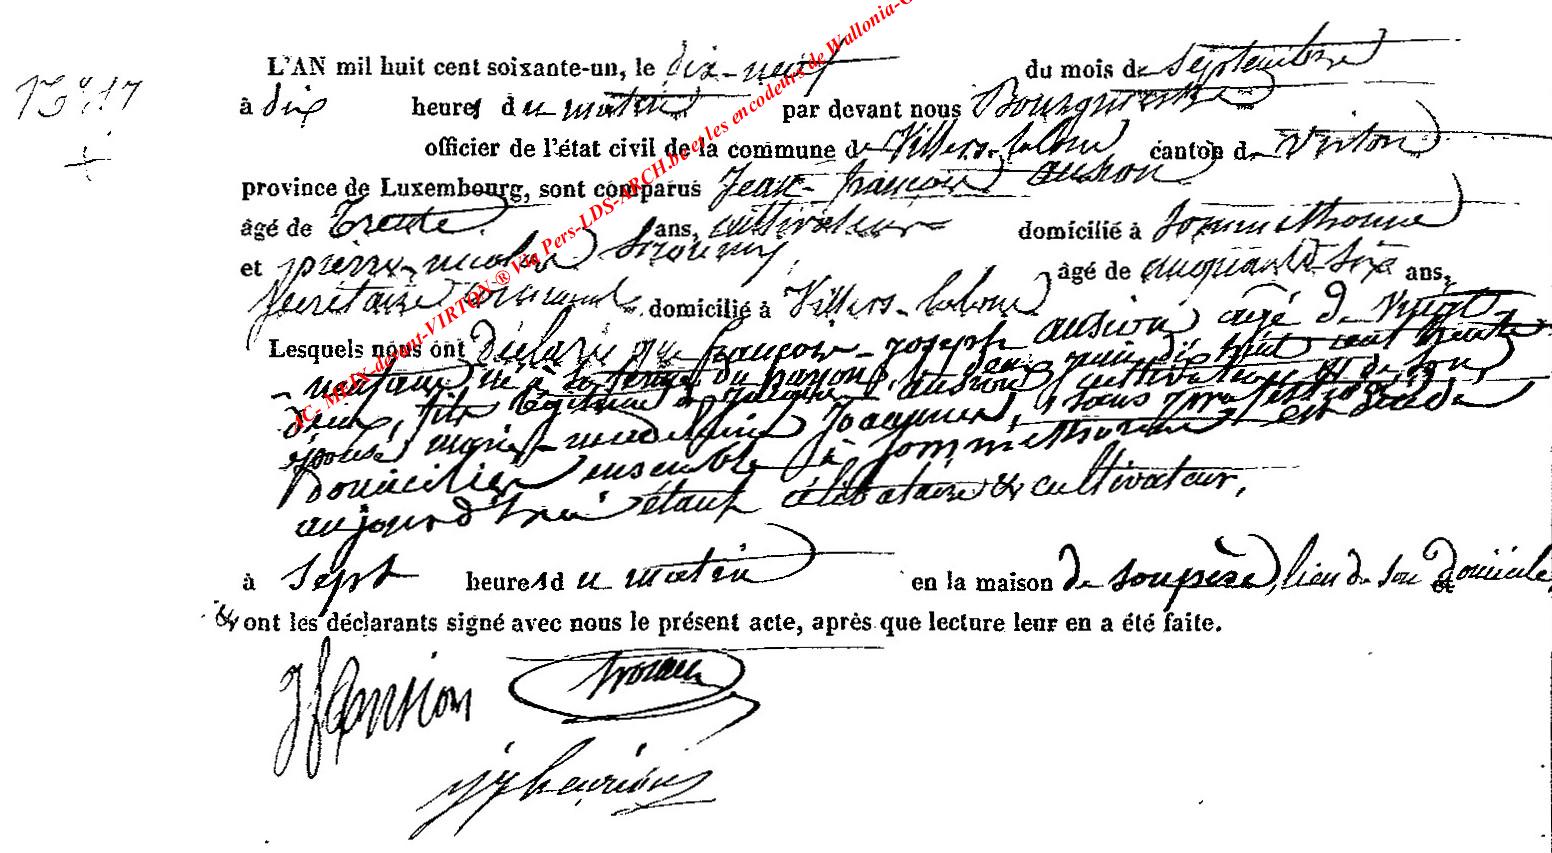 N° 17
L'AN mil huit cent soixante-un, le dix-neuf du mois de Septembre
à dix heures du matin par devant nous Bourgmestre
officier de l'état civil de la commune de Villers-la-loue canton de Virton
province de Luxembourg, sont comparus Jean-françois ansion
âgé de Trente ans, cultivateur domicilié à Sommethonne
et pierre-nicolas âgé de cinquante Six ans,
Secrétaire communal domicilié à Villers-laloue
Lesquels nous ont déclaré que françois-joseph ansion âgé de vingt-
-neuf ans, né à du deux juin dix huit cent trente
deux, fils légitime de ansion cultivateur et de son
épouse marie-madelaine Jacquemin, sans profession
domiciliés ensemble à Sommethonne est décédé
aujourd'hui étant célibataire & cultivateur,
à Sept heures du matin en la maison de son père, lieu de son domicile
& ont les déclarants signé avec nous le présent acte, après que lecture leur en a été faite.
JfAnsion
IC- MEIX-devant-VIRTON ® Via Pers-LDS-ARCH.be et les encodeurs de Wallonia-